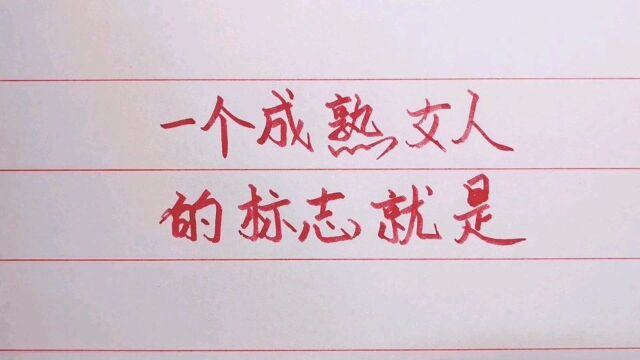 一个成熟女人
的标志就是